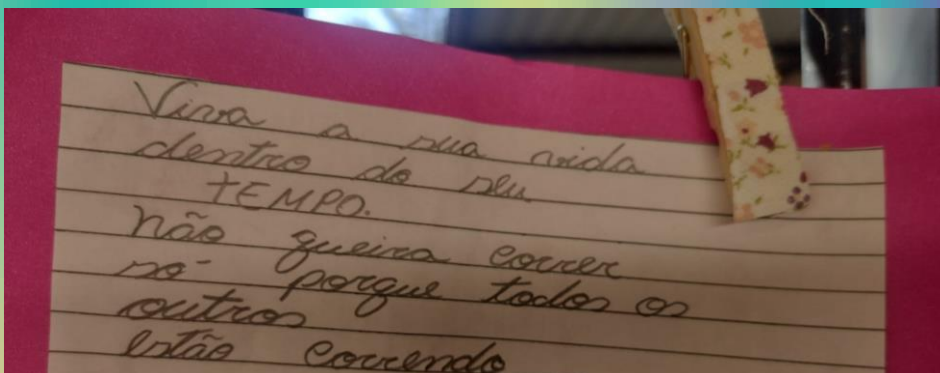 Viva a sua vida
dentro do seu
TEMPO.
Não queira correr
só porque todos os
outros
estão correndo